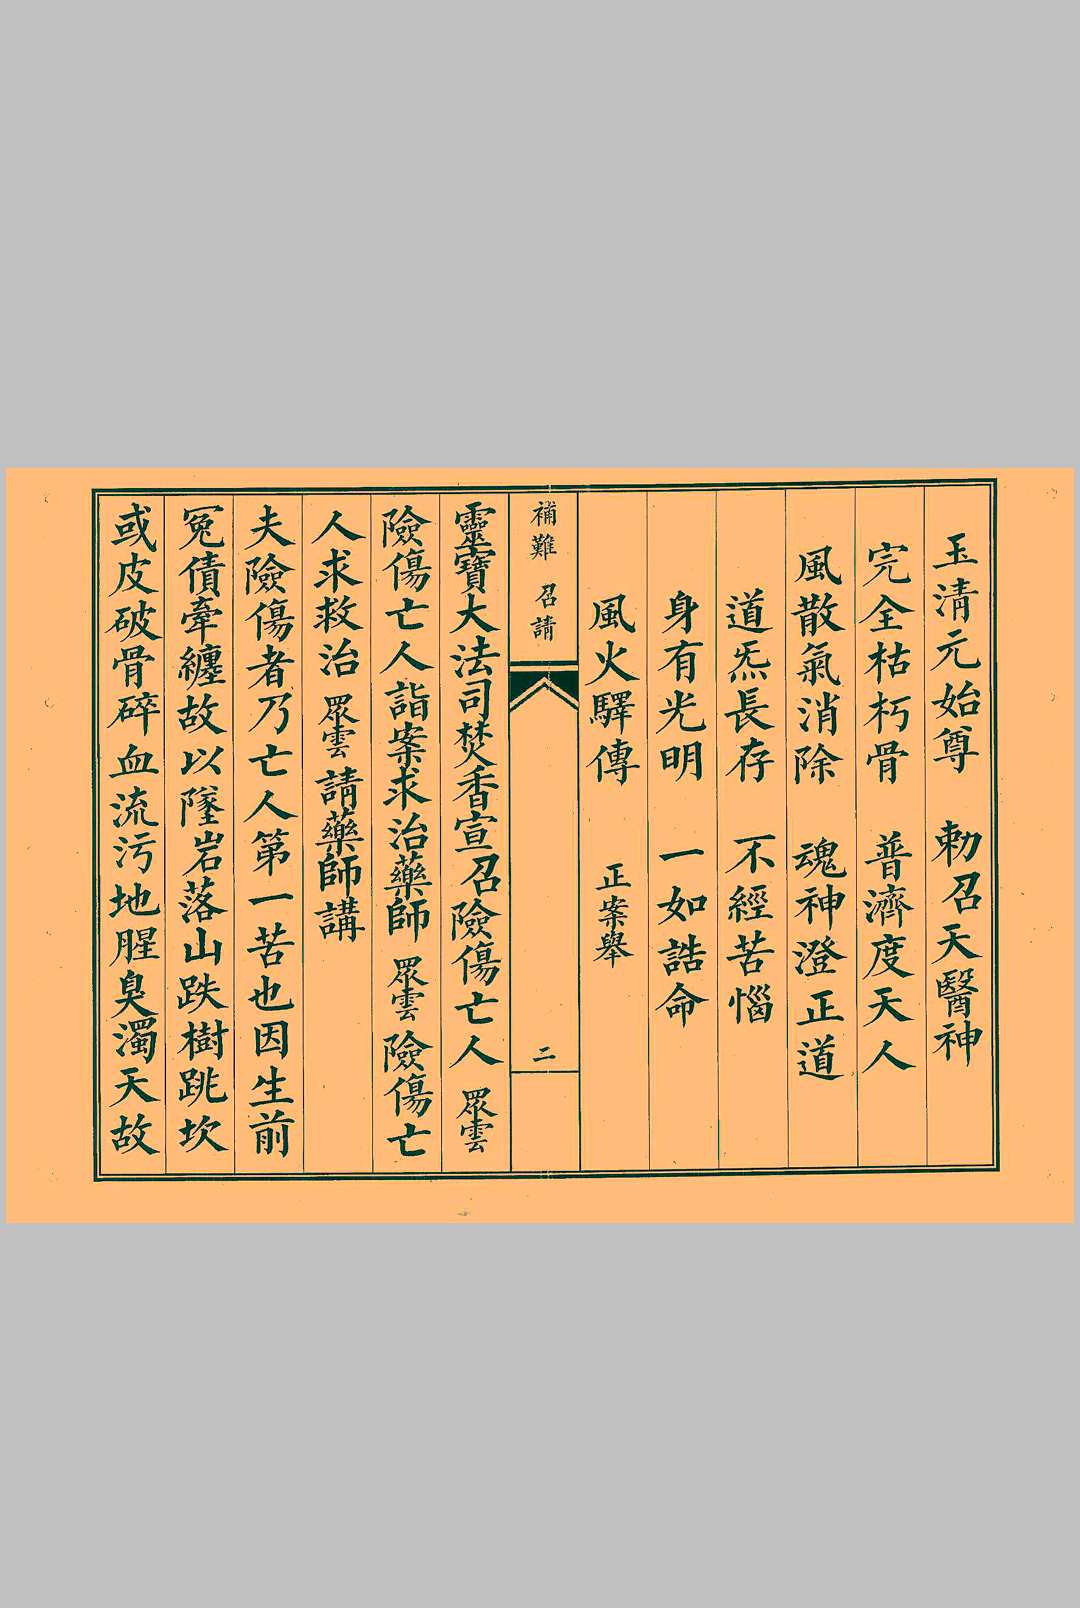 玉清元始尊　勅召天醫神
完全枯朽骨　普濟度天人
風散氣消除　魂神澄正道
道炁長存　不經苦惱
身有光明　一如誥命
風火驛傳　正案舉
補難　召請　二
靈寶大法司焚香宣召險傷亡人　眾雲
險傷亡人詣案求治藥師　眾雲　險傷亡
人求救治　眾雲　請藥師講
夫險傷者乃亡人第一苦也因生前
冤債牽纏故以墜岩落山跌樹跳坎
或皮破骨碎血流污地腥臭濁天故